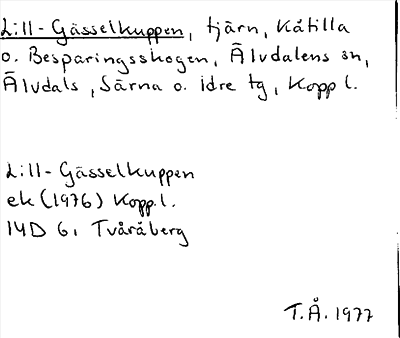 Lill-Gässelkuppen, tjärn, Kåtilla
o. Besparingsskogen, Älvdalens sn,
Älvdals, Särna o. Idre tg, Kopp l.
Lill-Gässelkuppen
ek (1976) Kopp.l.
14D 6i Tvåråberg
T.Å. 1977